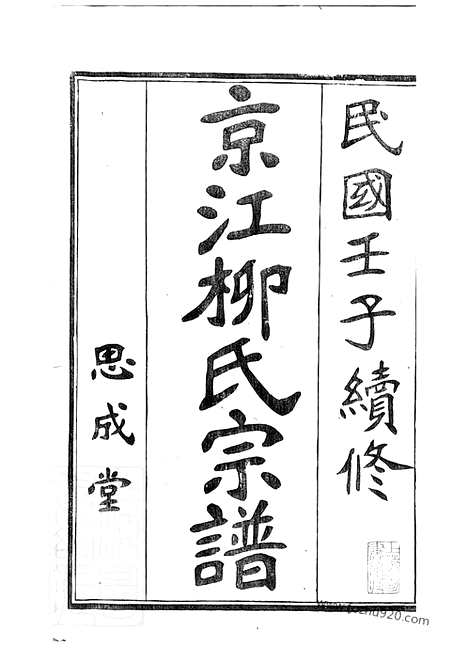 民國壬子續修
京江柳氏宗譜
思成堂